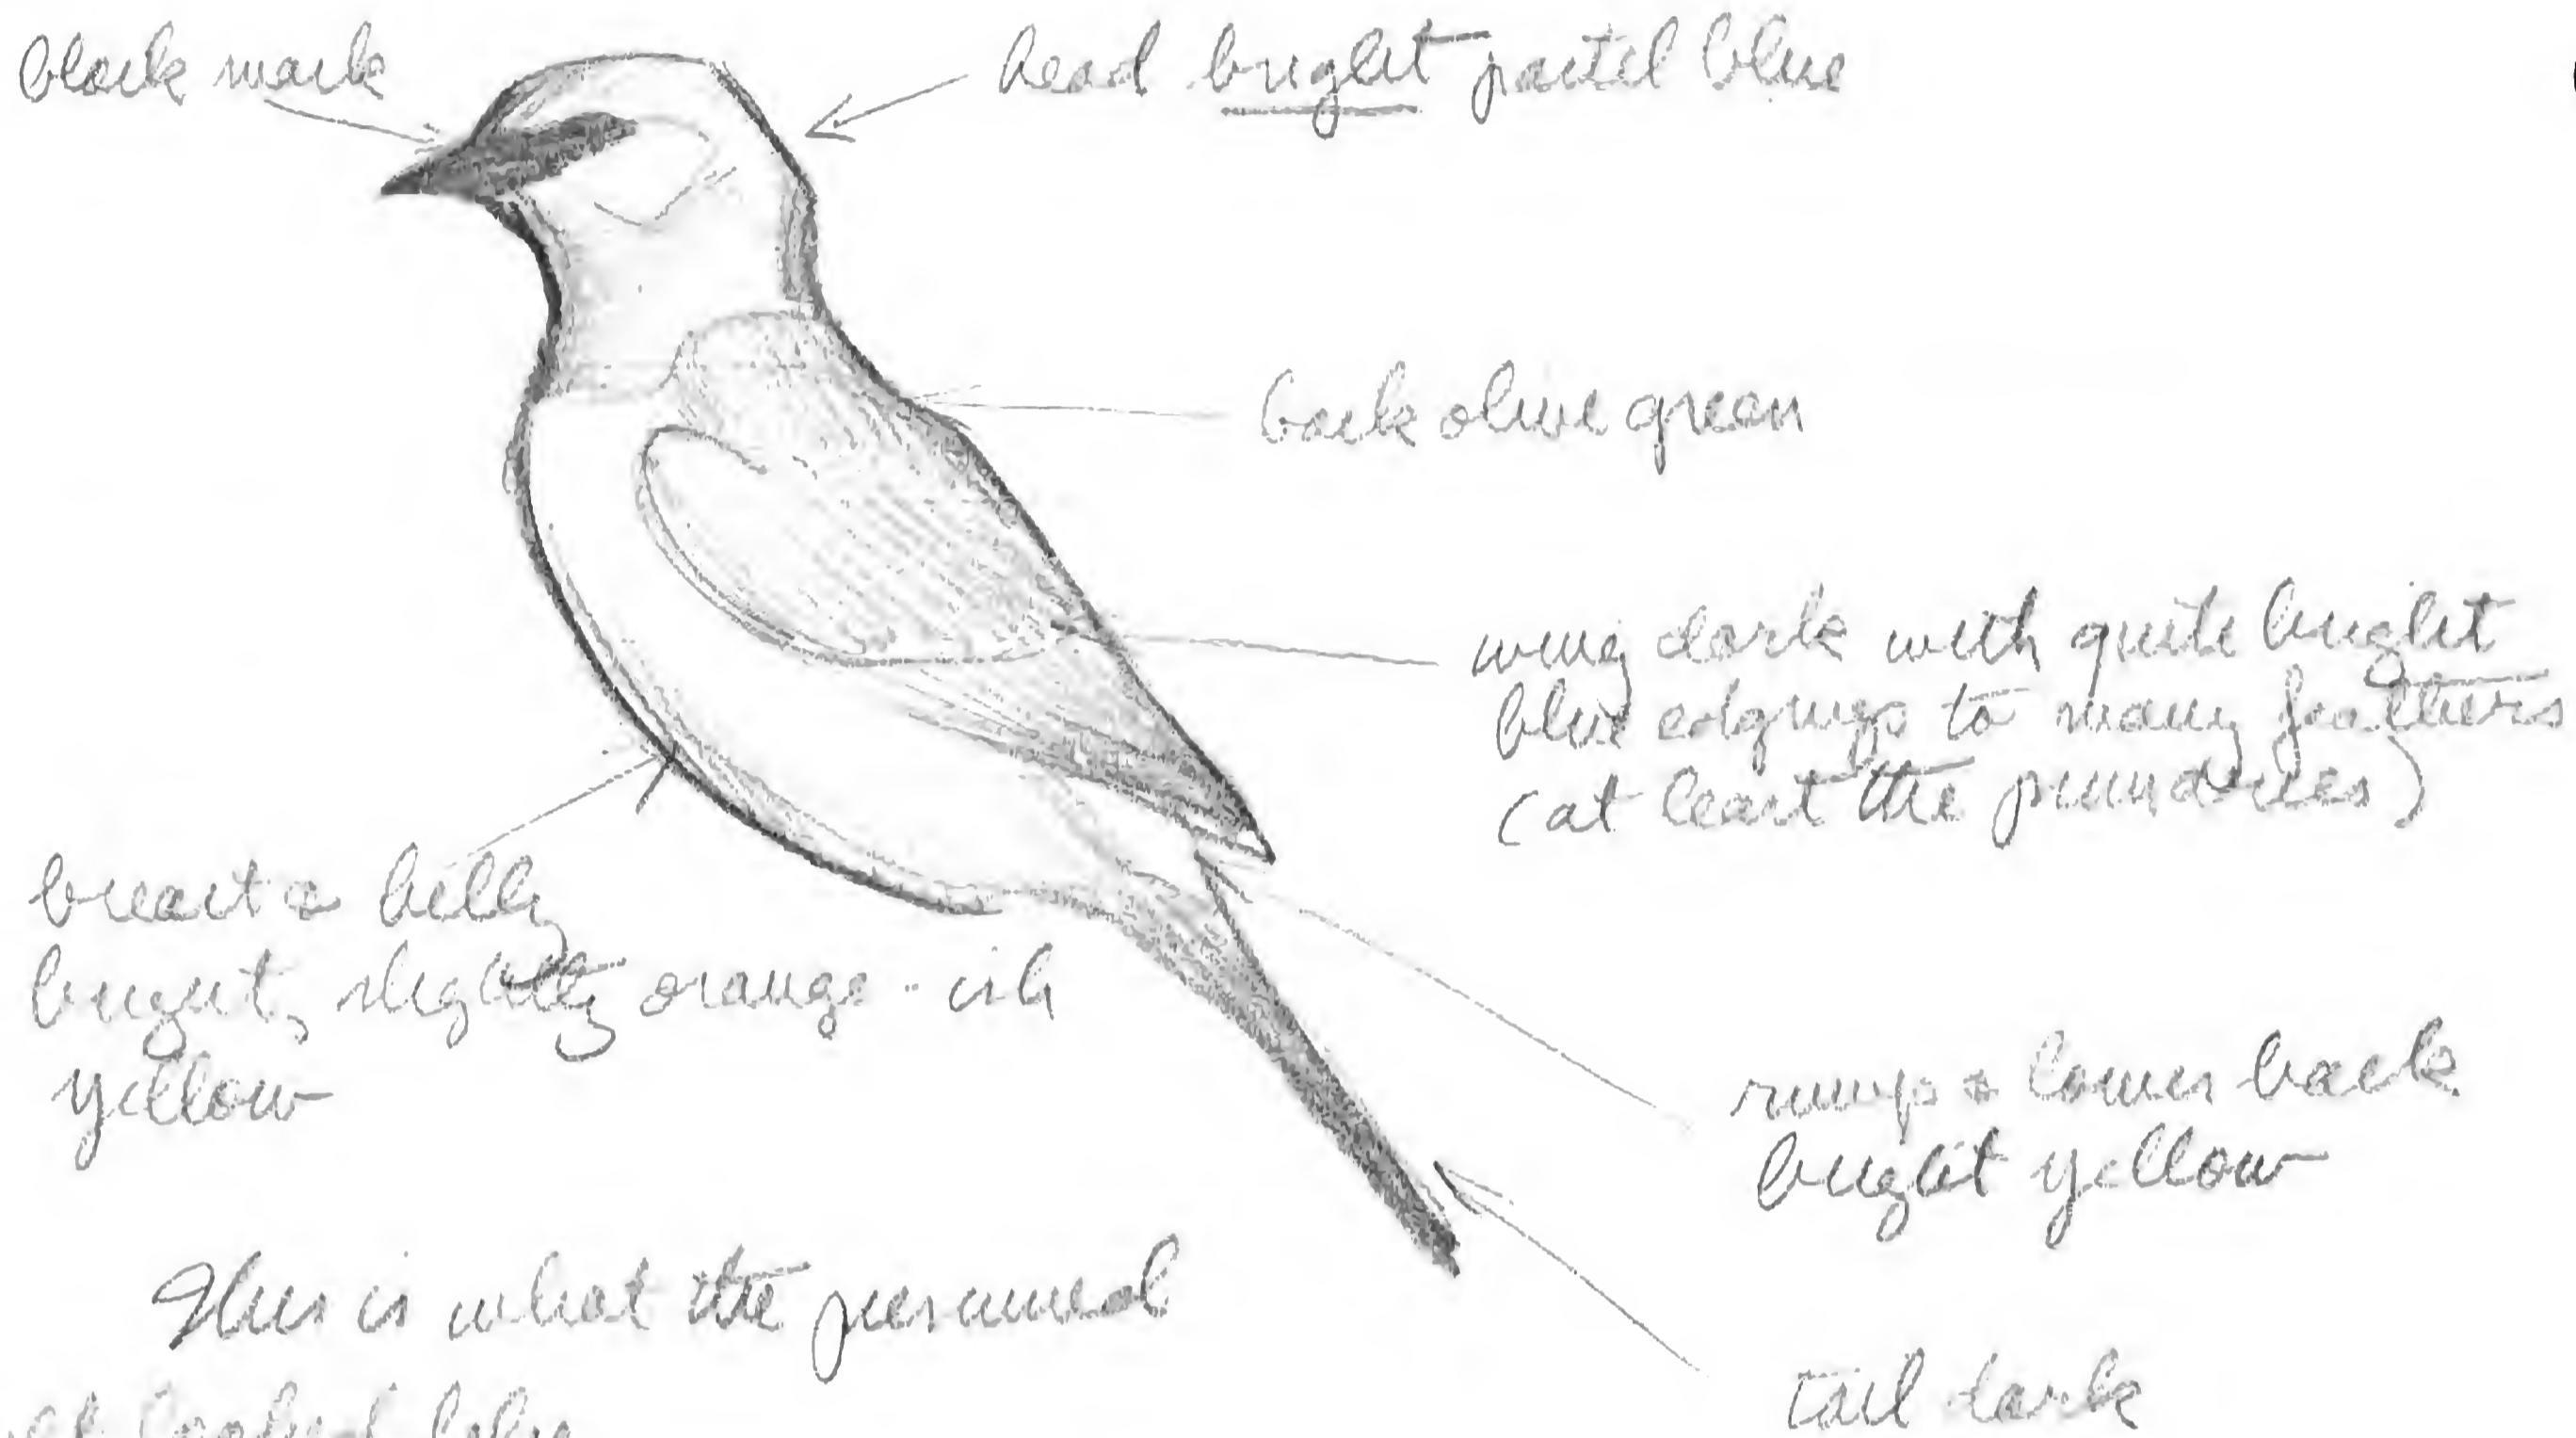 black mark
head bright pastel blue
back olive green
wing dark with quite bright
blue edgings to many feathers
(at least the primaries)
breast & belly
bright, slightly orange-ish
yellow
rump & lower back
bright yellow
This is what the presumed
looked like
tail dark